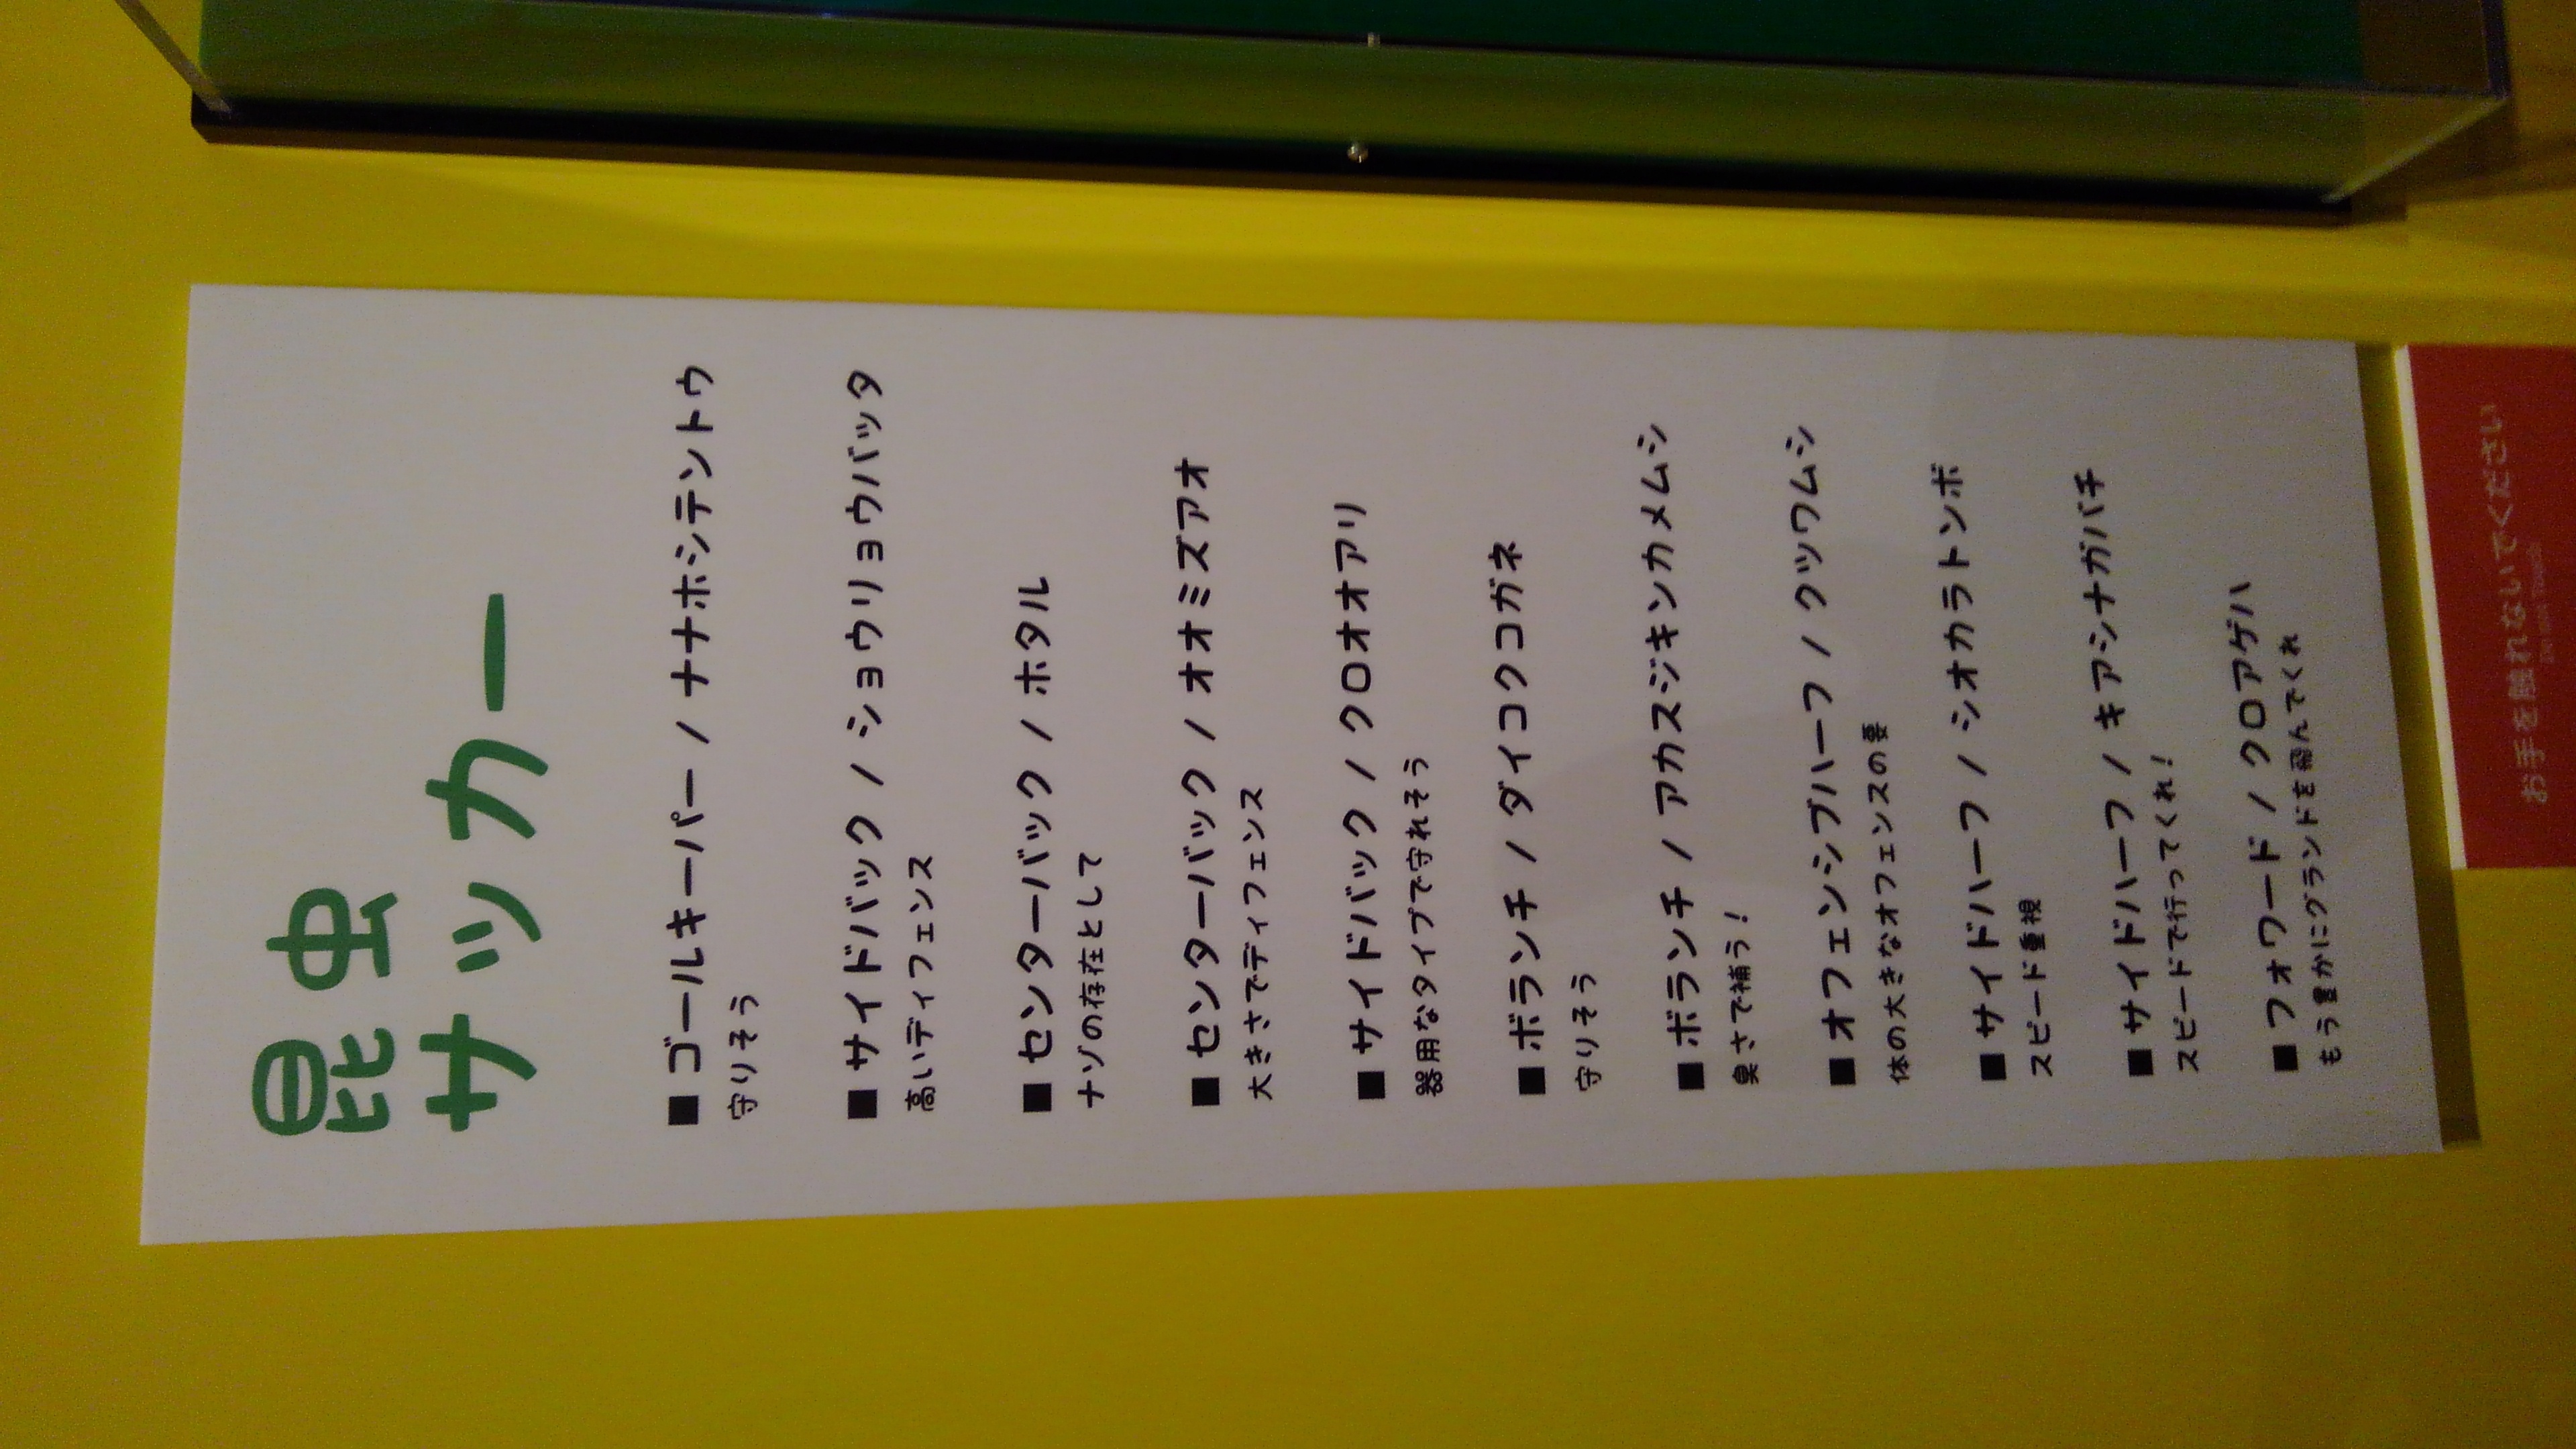 昆虫
サッカー
■ ゴールキーパー / ナナホシテントウ
守りそう
■ サイドバック / ショウリョウバッタ
高いディフェンス
■ センターバック / ホタル
ナゾの存在として
■ センターバック / オオミズアオ
大きさでディフェンス
■ サイドバック / クロオオアリ
器用なタイプで守れそう
■ ボランチ / ダイコクコガネ
守りそう
■ ボランチ / アカスジキンカメムシ
臭さで補う!
■ オフェンシブハーフ / クツワムシ
体の大きなオフェンスの要
■ サイドハーフ / シオカラトンボ
スピード重視
■ サイドハーフ / キアシナガバチ
スピードで行ってくれ!
■ フォワード / クロアゲハ
もう豊かにグランドを飛んでくれ
お手を触れないでください
Do not Touch